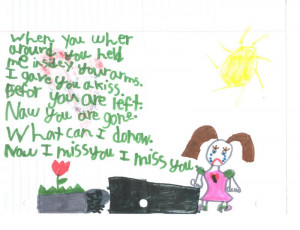 When you wher
around you held
me insidey your arms.
I gave you a kiss.
Befor you are left.
Now you are gone.
What can I do now.
Now I miss you I miss you